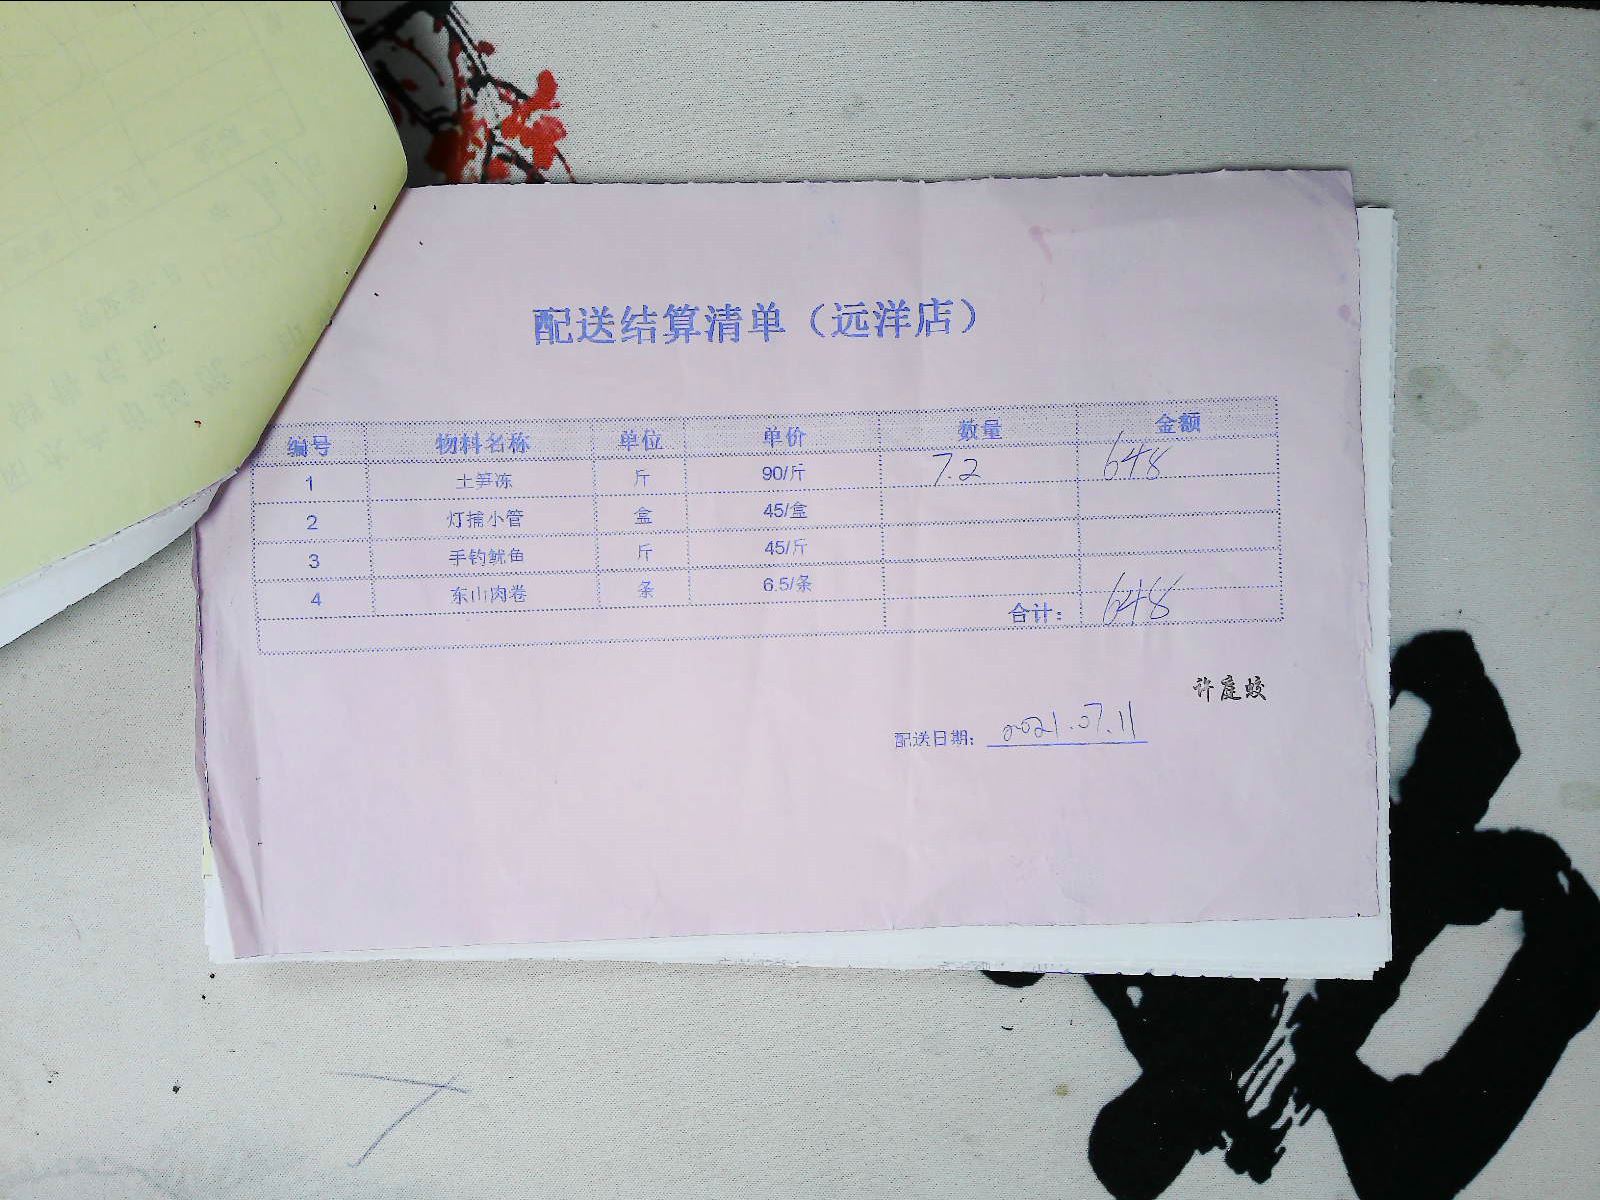 配送结算清单（远洋店）
编号 物料名称 单位 单价 数量 金额
1 土笋冻 斤 90/斤 7.2 648
2 灯捕小管 盒 45/盒
3 手钓鱿鱼 斤 45/斤
4 东山肉卷 条 6.5/条
合计： 648
许庭蛟
配送日期： 2021.07.11